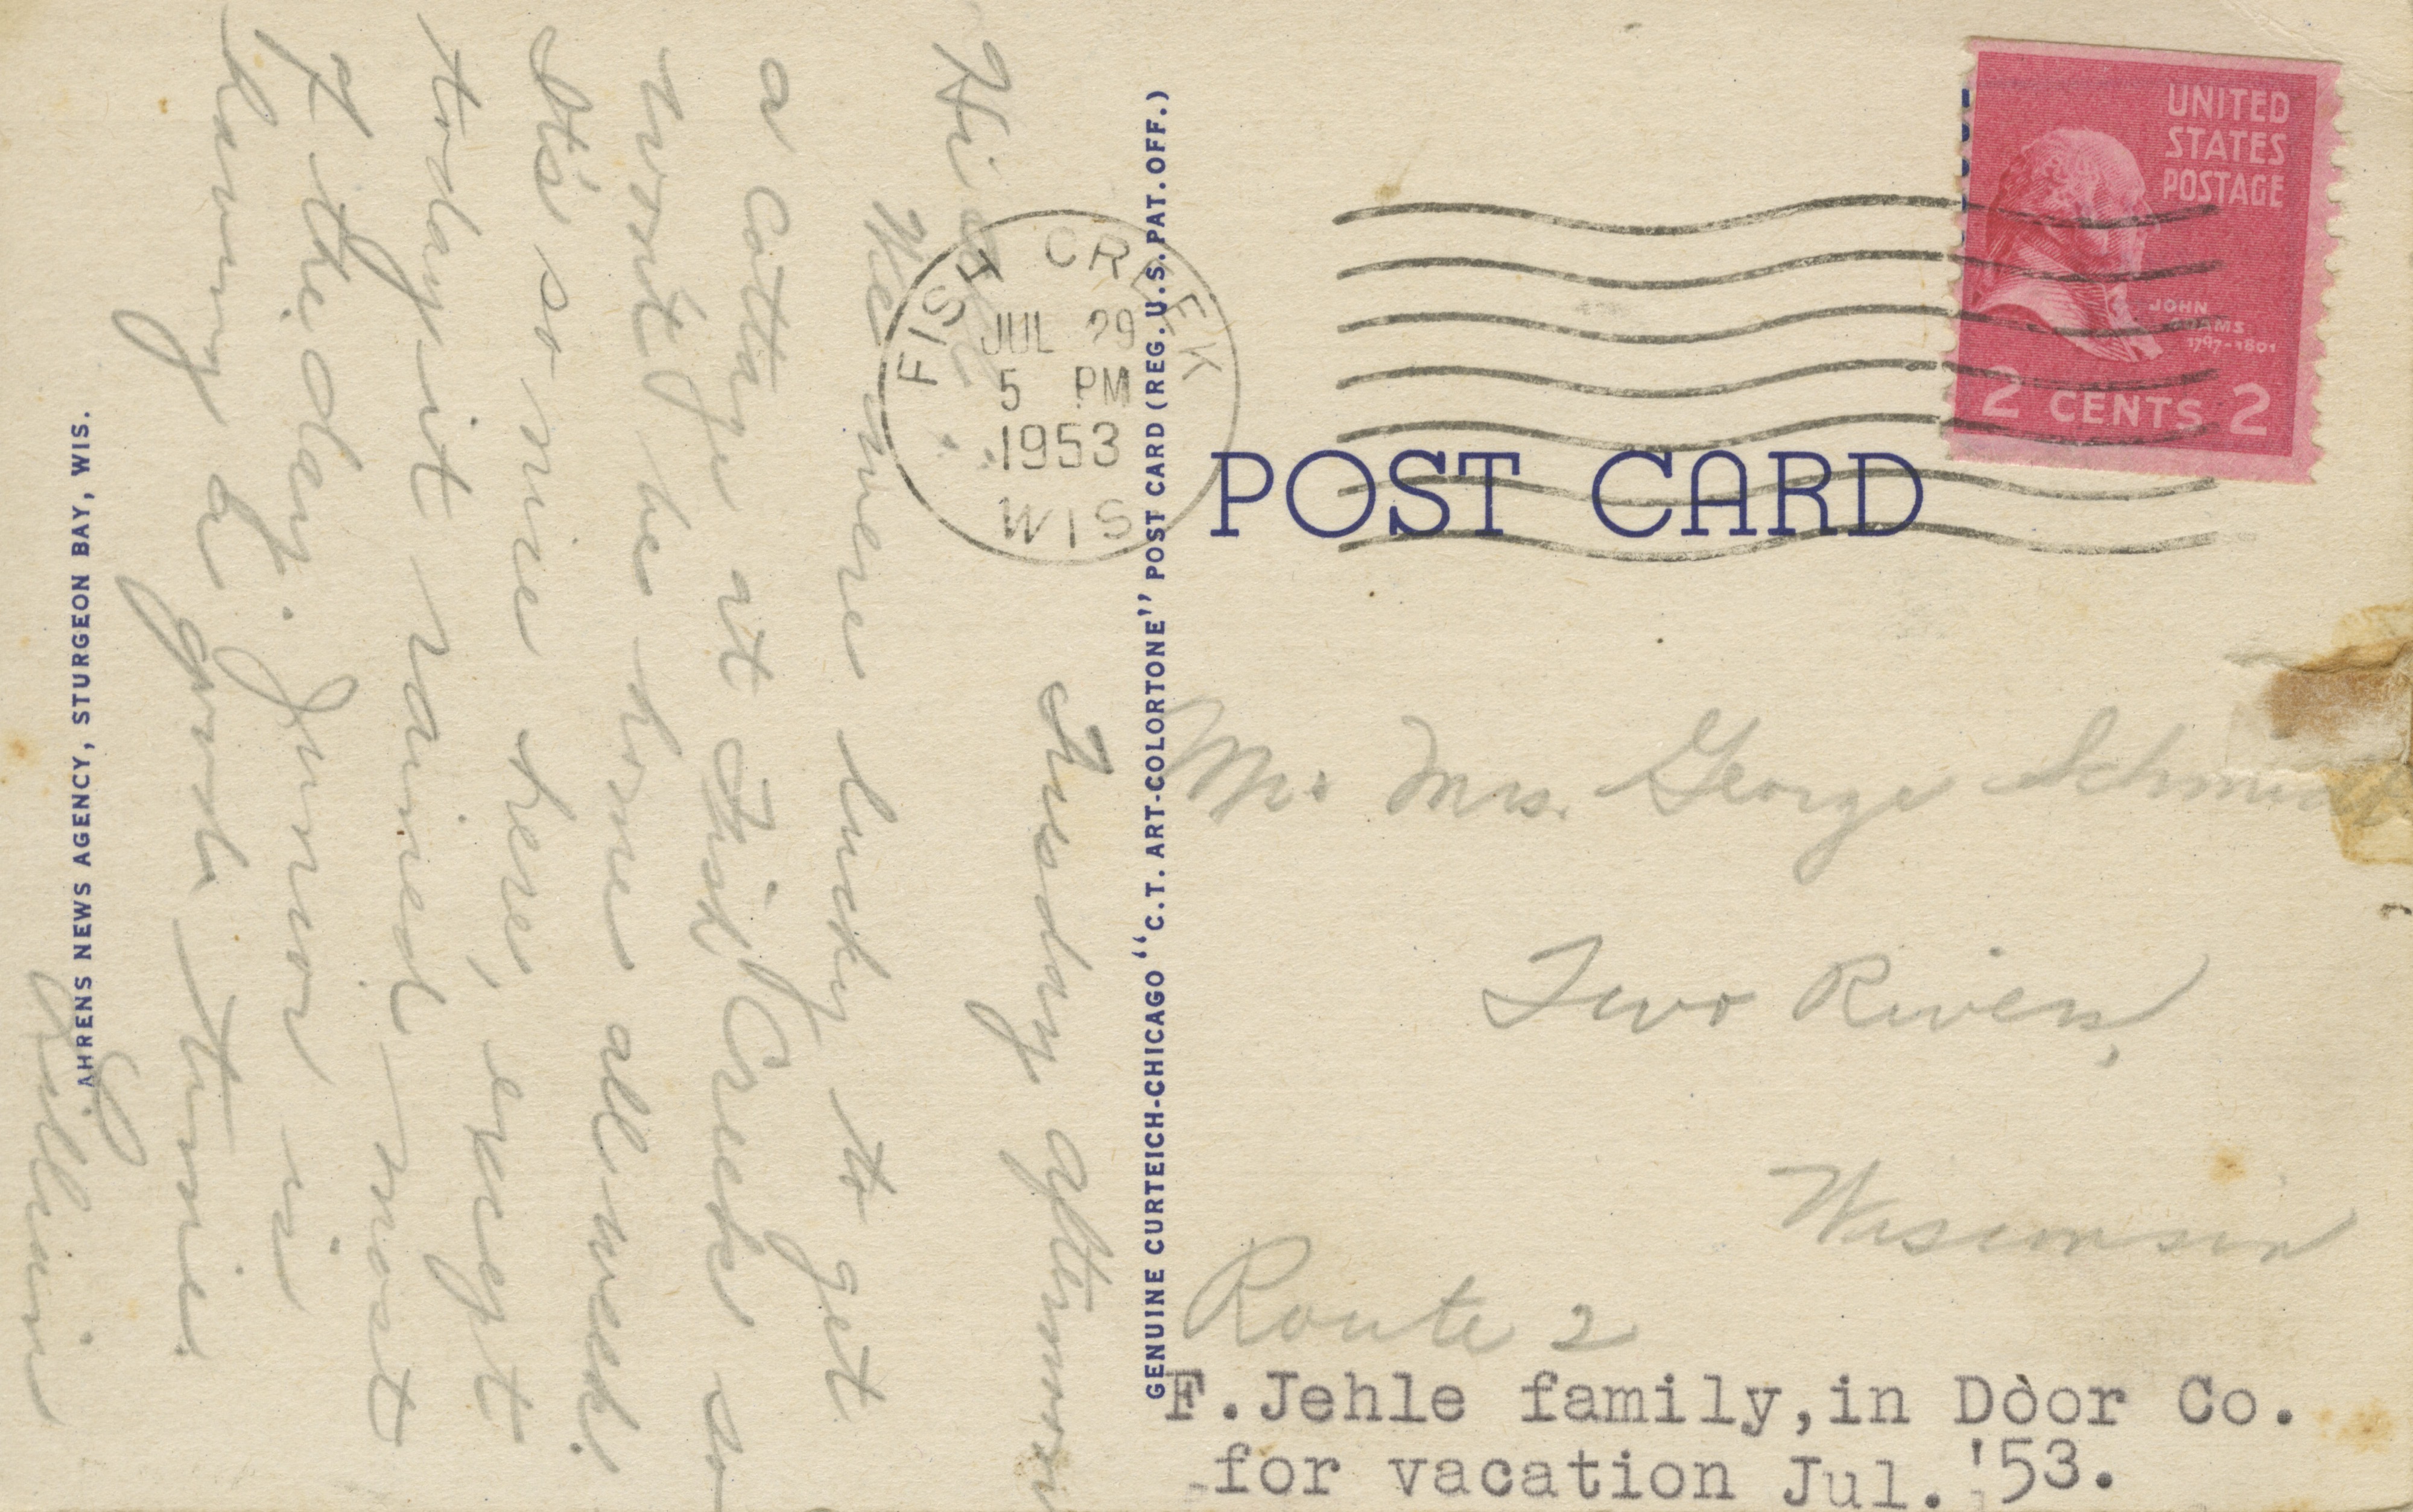 Tuesday afternoon
Hi
We were lucky to get
a cottage at Fish Creek so
won't be home all week.
It's so nice here, except
today it rained most
of the day. Junior is
having a good time.
AHRENS NEWS AGENCY, STURGEON BAY, WIS.
GENUINE CURTEICH-CHICAGO "C.T. ART-COLORTONE" POST CARD (REG. U.S. PAT. OFF.)
FISH CREEK
JUL 29
5 PM
1953
WIS
UNITED
STATES
POSTAGE
JOHN
ADAMS
1797-1801
2 CENTS 2
POST CARD
Mr. Mrs. George Schmidt
Two Rivers,
Wisconsin
Route 2
F.Jehle family,in Door Co.
for vacation Jul. '53.